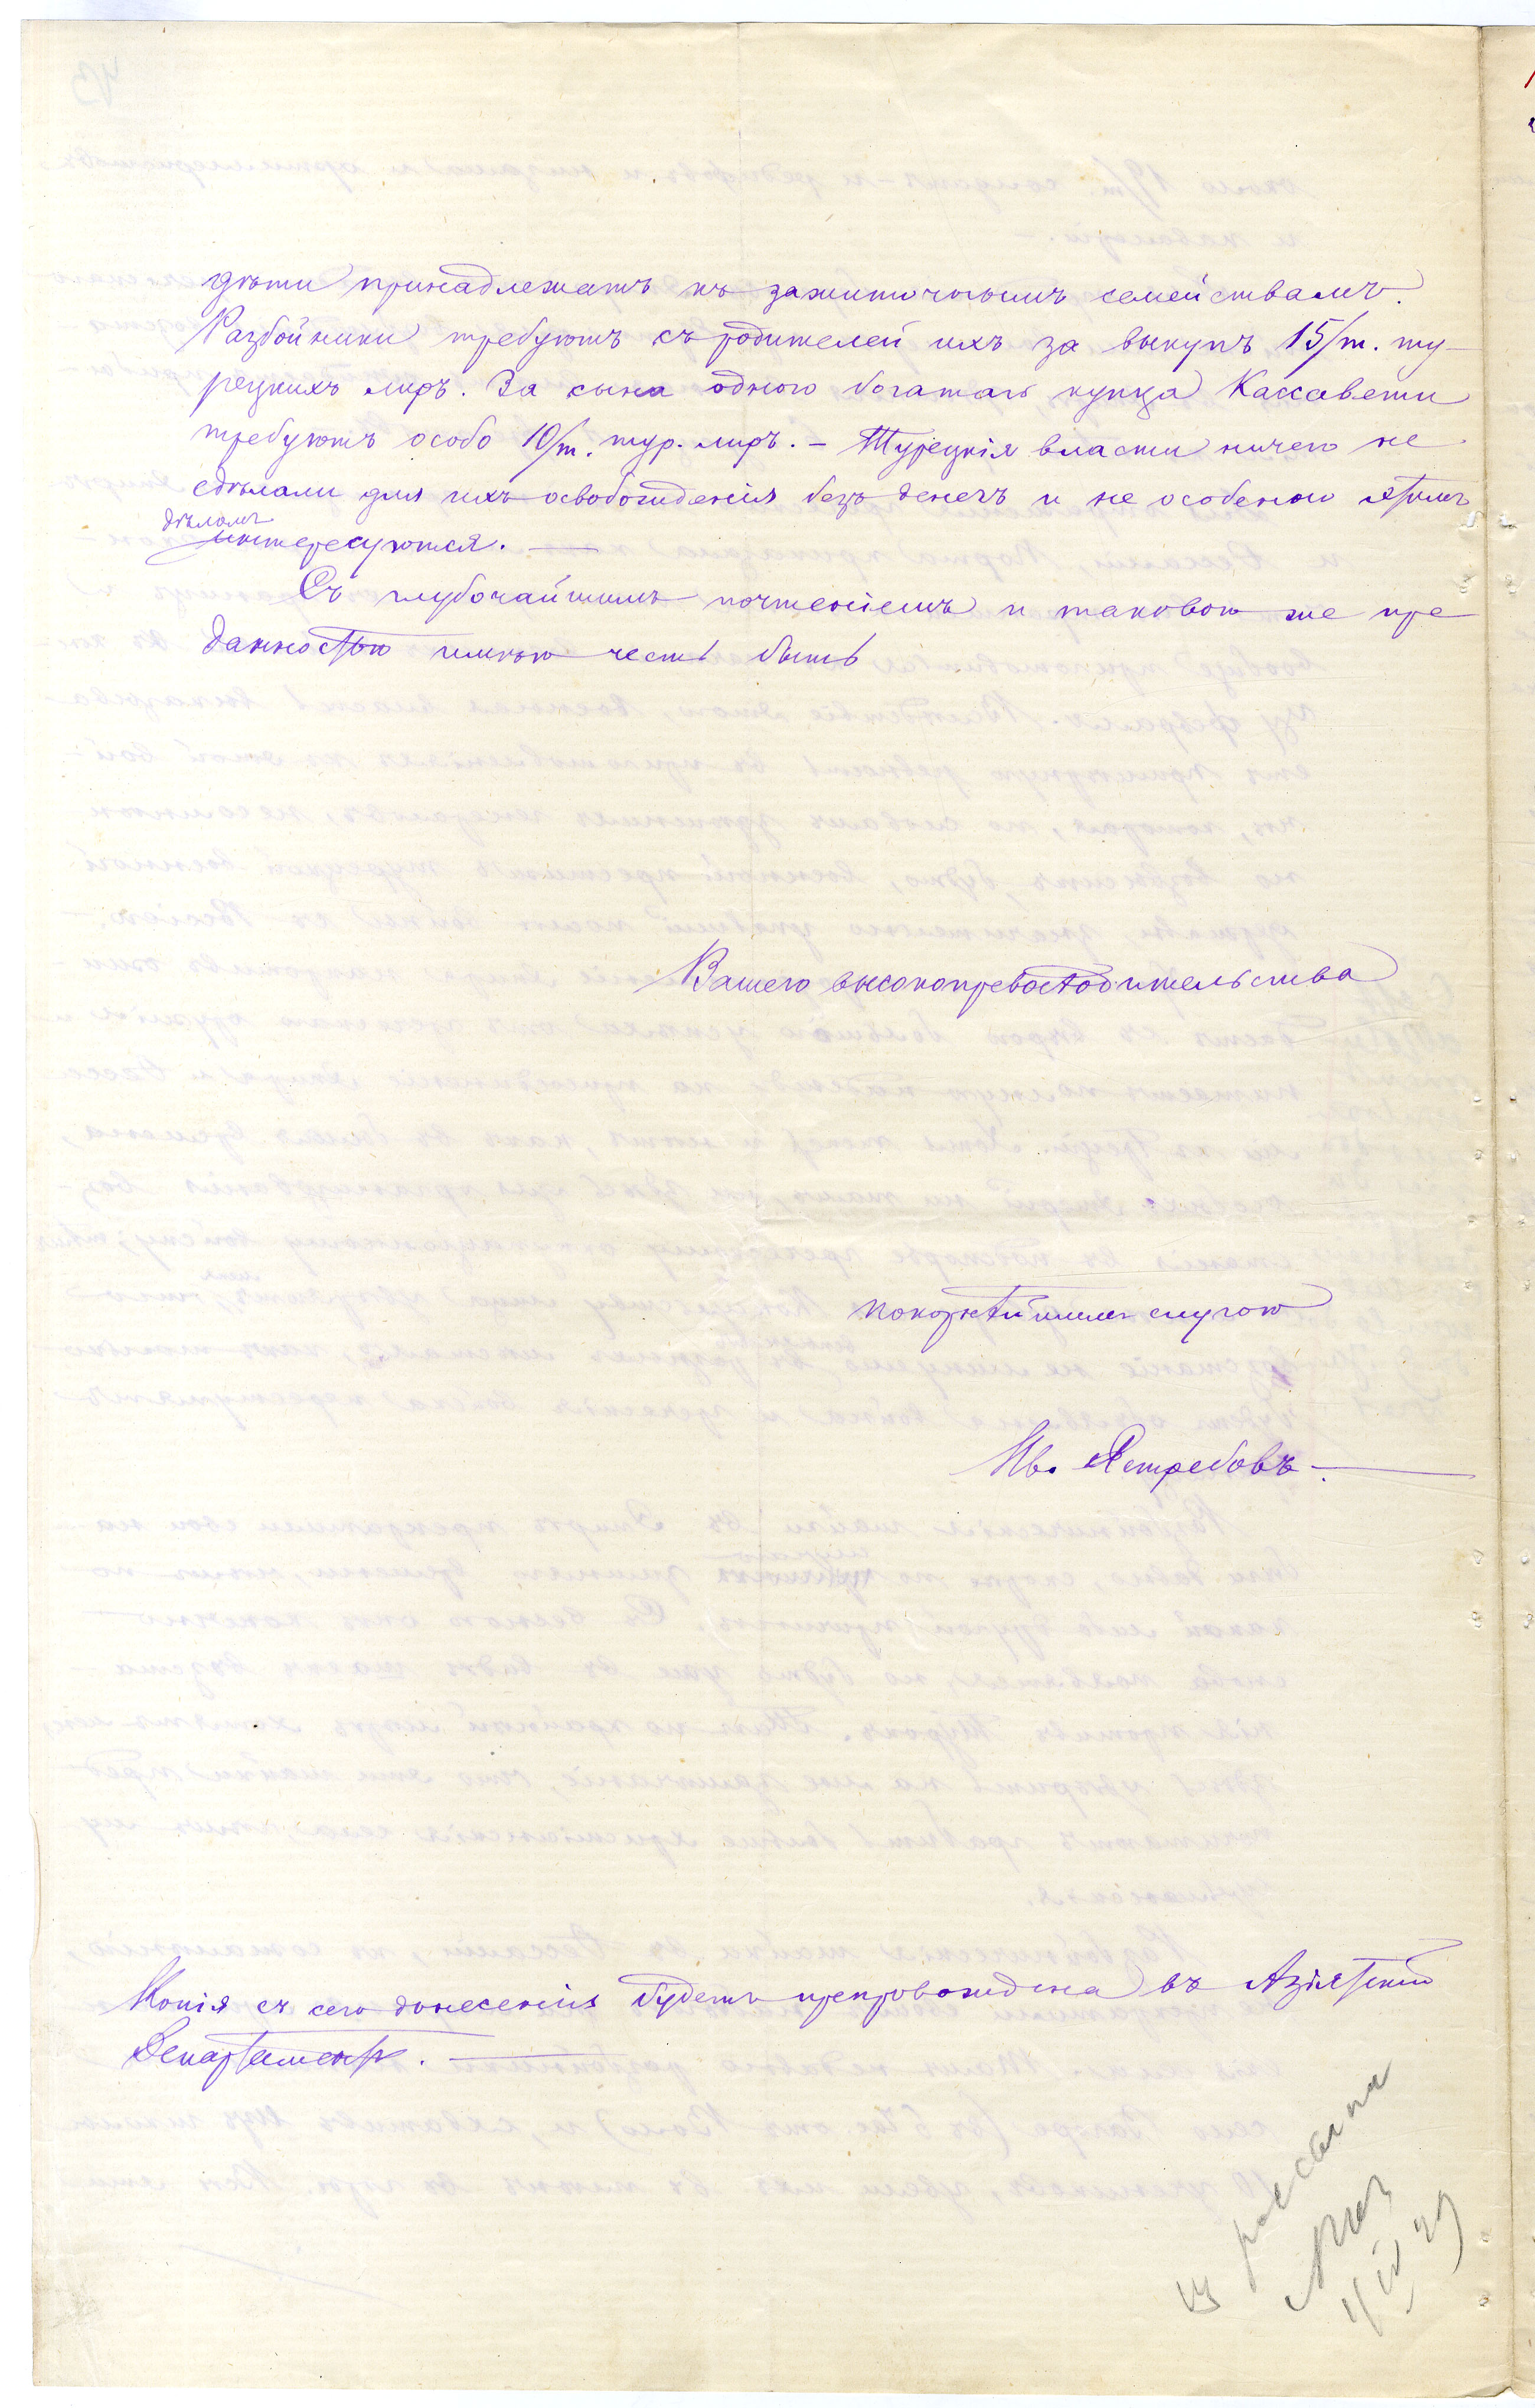 дѣти принадлежатъ къ зажиточнымъ семействамъ.
Разбойники требуютъ съ родителей ихъ за выкупъ 15/т. ту-
рецкихъ лиръ. За сына одного богатаго купца Кассавети
требуютъ особо 10/т. тур. лиръ. – Турецкія власти ничего не
сдѣлали для ихъ освобожденія безъ денегъ и не особенно этимъ
дѣломъ
интересуются. —
Съ глубочайшимъ почтеніемъ и таковою же пре
данностью имѣю честь быть
Вашего высокопревосходительства
покорнѣйшимъ слугою
Ив. Ястребовъ. —
Копія съ сего донесенія будетъ препровождена въ Азіятскій
Департаментъ. —